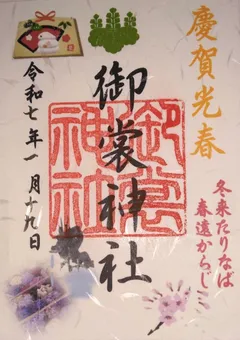 慶賀光春
冬来たりなば
春遠からじ…
御裳神社
御裳神社
令和七年一月十九日